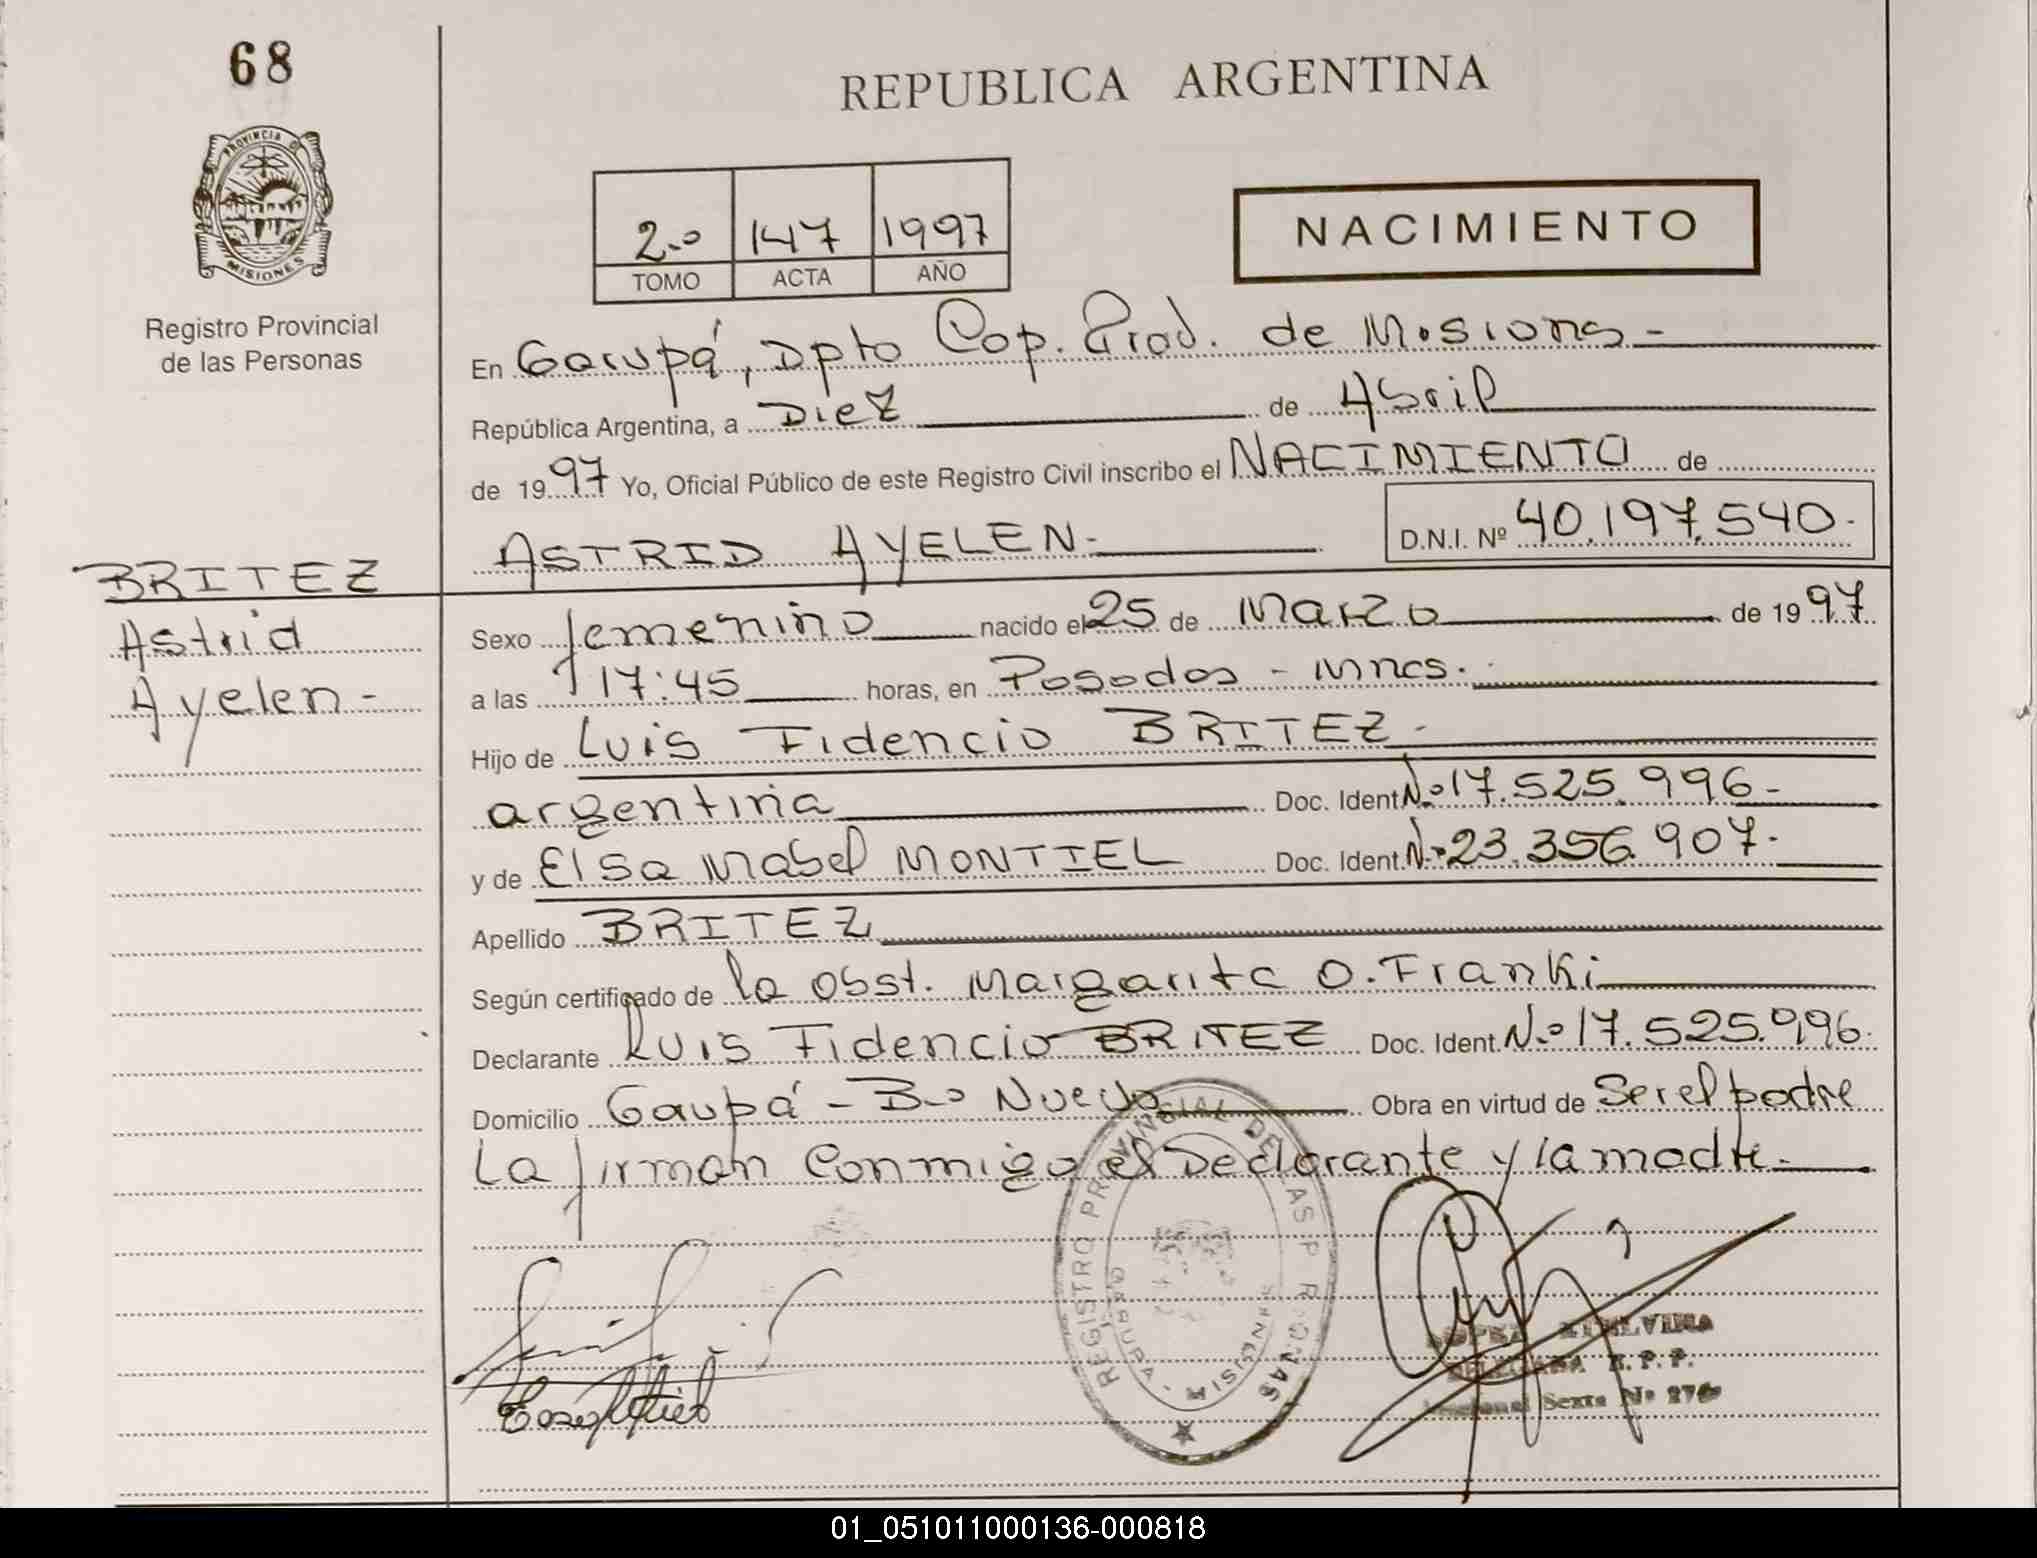 68
PROVINCIA DE
MISIONES
Registro Provincial
de las Personas
REPUBLICA ARGENTINA
2.º 147 1997
TOMO ACTA AÑO
NACIMIENTO
En Garupá, Dpto Cap. Prov. de Misiones -
República Argentina, a Diez de Abril
de 1997 Yo, Oficial Público de este Registro Civil inscribo el NACIMIENTO de
ASTRID AYELEN.- D.N.I. Nº 40.197.540.
BRITEZ
Astrid
Ayelen -
Sexo femenino nacido el 25 de Marzo de 1997
a las 17:45 horas, en Posadas - Mnes.
Hijo de Luis Fidencio BRITEZ -
argentina Doc. Ident. N.º 17.525.996-
y de Elsa Mabel MONTIEL Doc. Ident. N.º 23.356.907-
Apellido BRITEZ
Según certificado de la obst. Margarita O. Franki
Declarante Luis Fidencio BRITEZ Doc. Ident. N.º 17.525.996.
Domicilio Garupá - B.º Nuevo Obra en virtud de Ser el padre
La firman Conmigo el Declarante y la madre.-
REGISTRO PROVINCIAL DE LAS PERSONAS
GARUPA - MISIONES
LOPEZ ETELVINA
DELEGADA R. P. P.
Seccional Sexta Nº 276
01_051011000136-000818